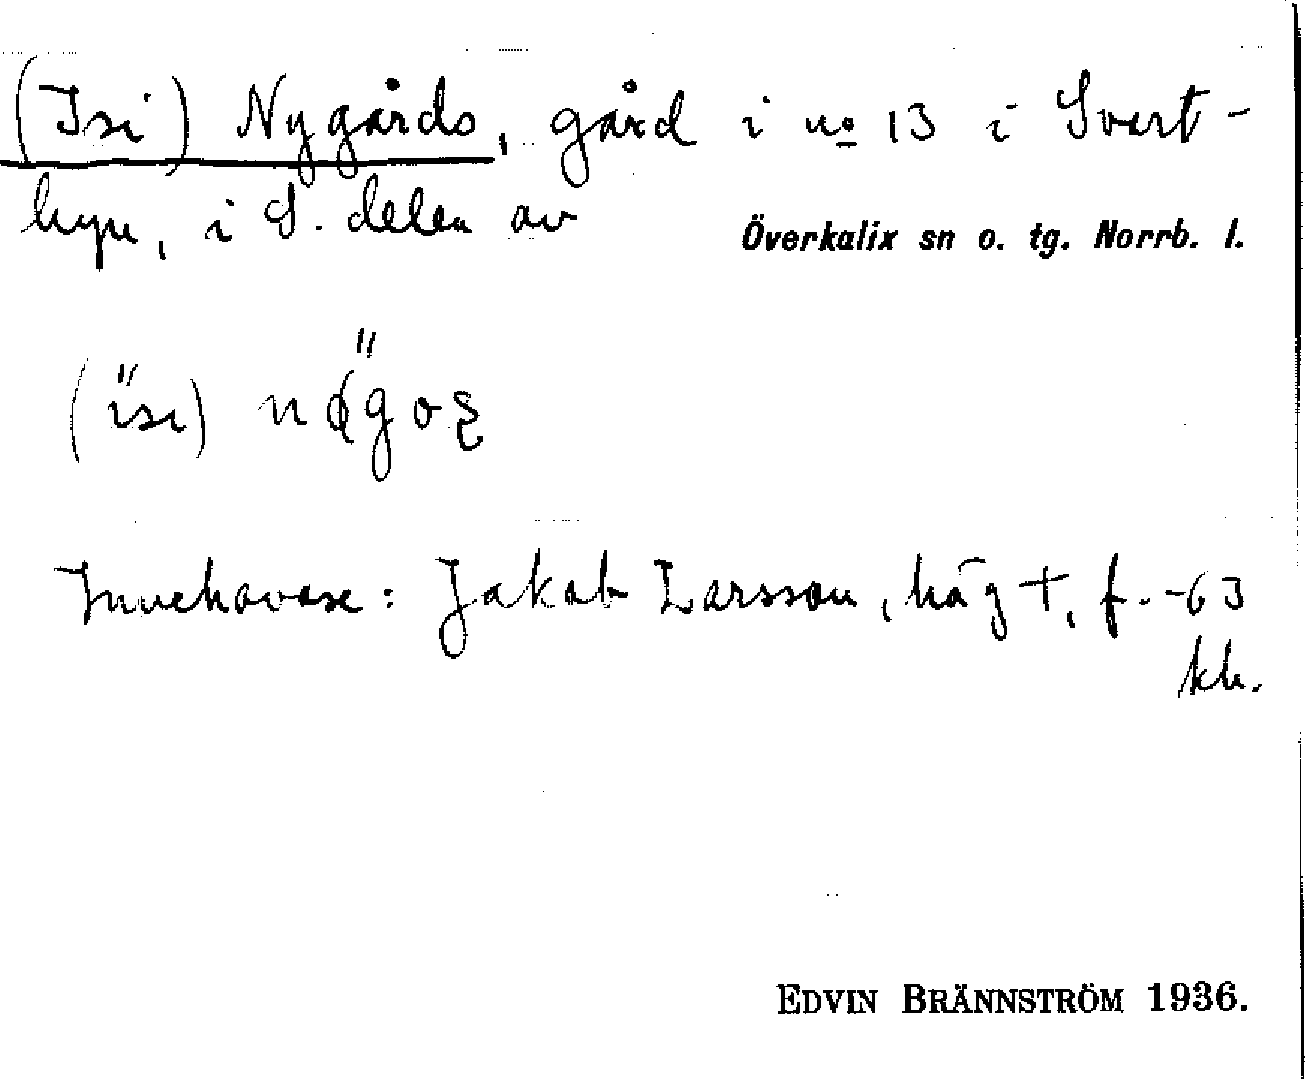 (Isi) Nygårds, gård i no 13 i Svart-
byn, i S. delen av Överkalix sn o. tg. Norrb. l.
(isi)
Innehavare: Jakob Larsson, häg †, f. -63
kb.
EDVIN BRÄNNSTRÖM 1936.